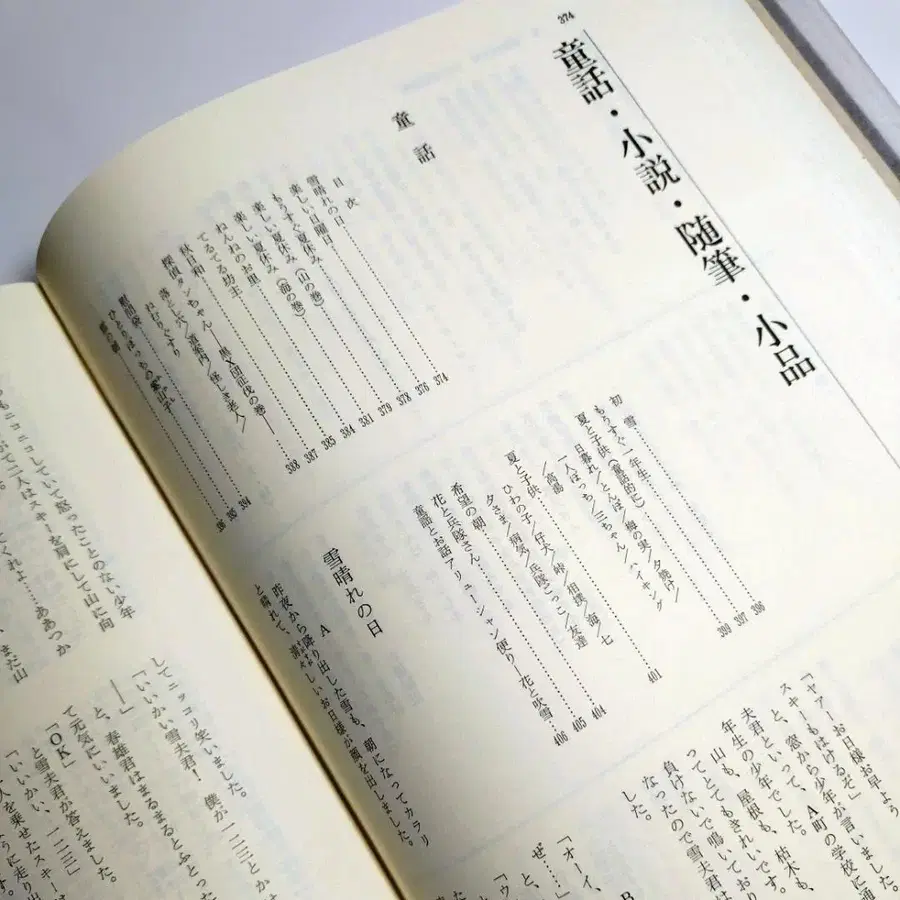 374
童話・小説・随筆・小品
童話
目次
雪晴れの日 374
楽しい日曜日 376
もうすぐ夏休み 378
楽しい夏休み(山の巻) 379
楽しい夏休み(海の巻) 381
ねんねのお里 384
てるてる坊主 385
秋日和 387
探偵タンちゃん―黒X団征伐の巻― 388
落とし穴/道案内/怪しき老人/
ねむりぐすり
慰問袋 394
ひとりぼっちの案山子 395
初雪 396
もうすぐ一年生 397
夏と子供(童話的に) 399
海の果/夕焼け/
日暮れ/とんぼ/三ちゃん/ハイキング
一人ぼっち
夏と子供 401
ひわの子/仔犬/峠/相撲/海/七
夕さま/病気/兵隊ごっこ/友達
希望の朝 404
花と兵隊さん 405
童話とお話アリューシャン便り―花と吹雪 406
雪晴れの日
A
昨夜から降り出した雪も、朝になってカラリ
と晴れて、清々しいお日様が顔を出しました。
「ヤァーお日様お早よう
スキーもはけるぞ」
と、窓から少年が言いました。
夫君といって、A町の学校に通
年生の少年でした。
山も、屋根も、枯木も、
ってとてもきれいです。
負けないで鳴いており
なったので雪夫君は
した。
B
「オーイ、
ぜ……」
と、
「ウ
もニコニコしていて怒ったことのない少年
がて二人はスキーを肩にして山に向
てくれよ……ああつか
まだ山
してニッコリ笑いました。
「いいかい雪夫君! 僕が一二三とか
――」
と、春雄君はまるまるとふとった
て元気にいいました。
「OK」
と雪夫君が答えました。
「いいかい、一二三」
人を乗せたスキー
うに走り出